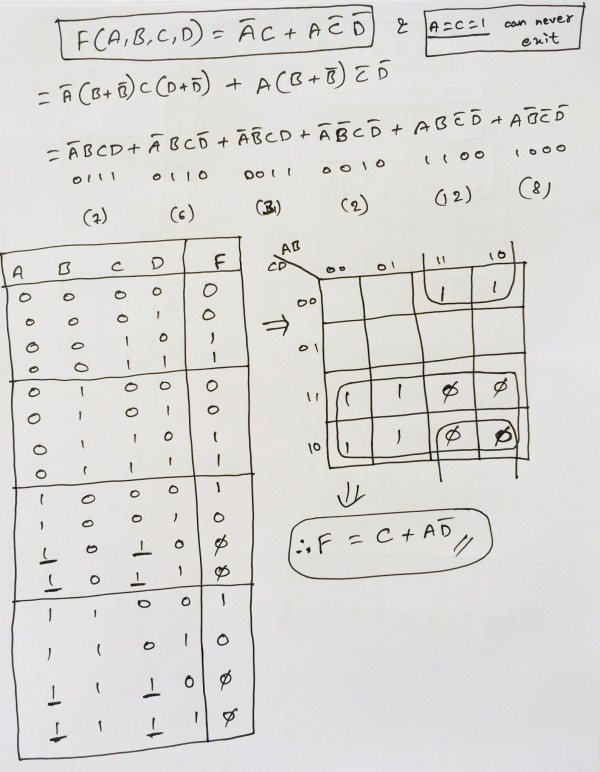 F(A,B,C,D) = A̅C + AC̅D̅ & A=C=1 can never exit
= A̅(B+B̅)C(D+D̅) + A(B+B̅)C̅D̅
= A̅BCD + A̅BCD̅ + A̅B̅CD + A̅B̅CD̅ + ABC̅D̅ + AB̅C̅D̅
0111 0110 0011 0010 1100 1000
(7) (6) (3) (2) (12) (8)
A B C D F
0 0 0 0 0
0 0 0 1 0
0 0 1 0 1
0 0 1 1 1
0 1 0 0 0
0 1 0 1 0
0 1 1 0 1
0 1 1 1 1
1 0 0 0 1
1 0 0 1 0
1 0 1 0 ∅
1 0 1 1 ∅
1 1 0 0 1
1 1 0 1 0
1 1 1 0 ∅
1 1 1 1 ∅
⇒
AB
CD 00 01 11 10
00 1 1
01
11 1 1 ∅ ∅
10 1 1 ∅ ∅
⇓
∴ F = C + AD̅ //